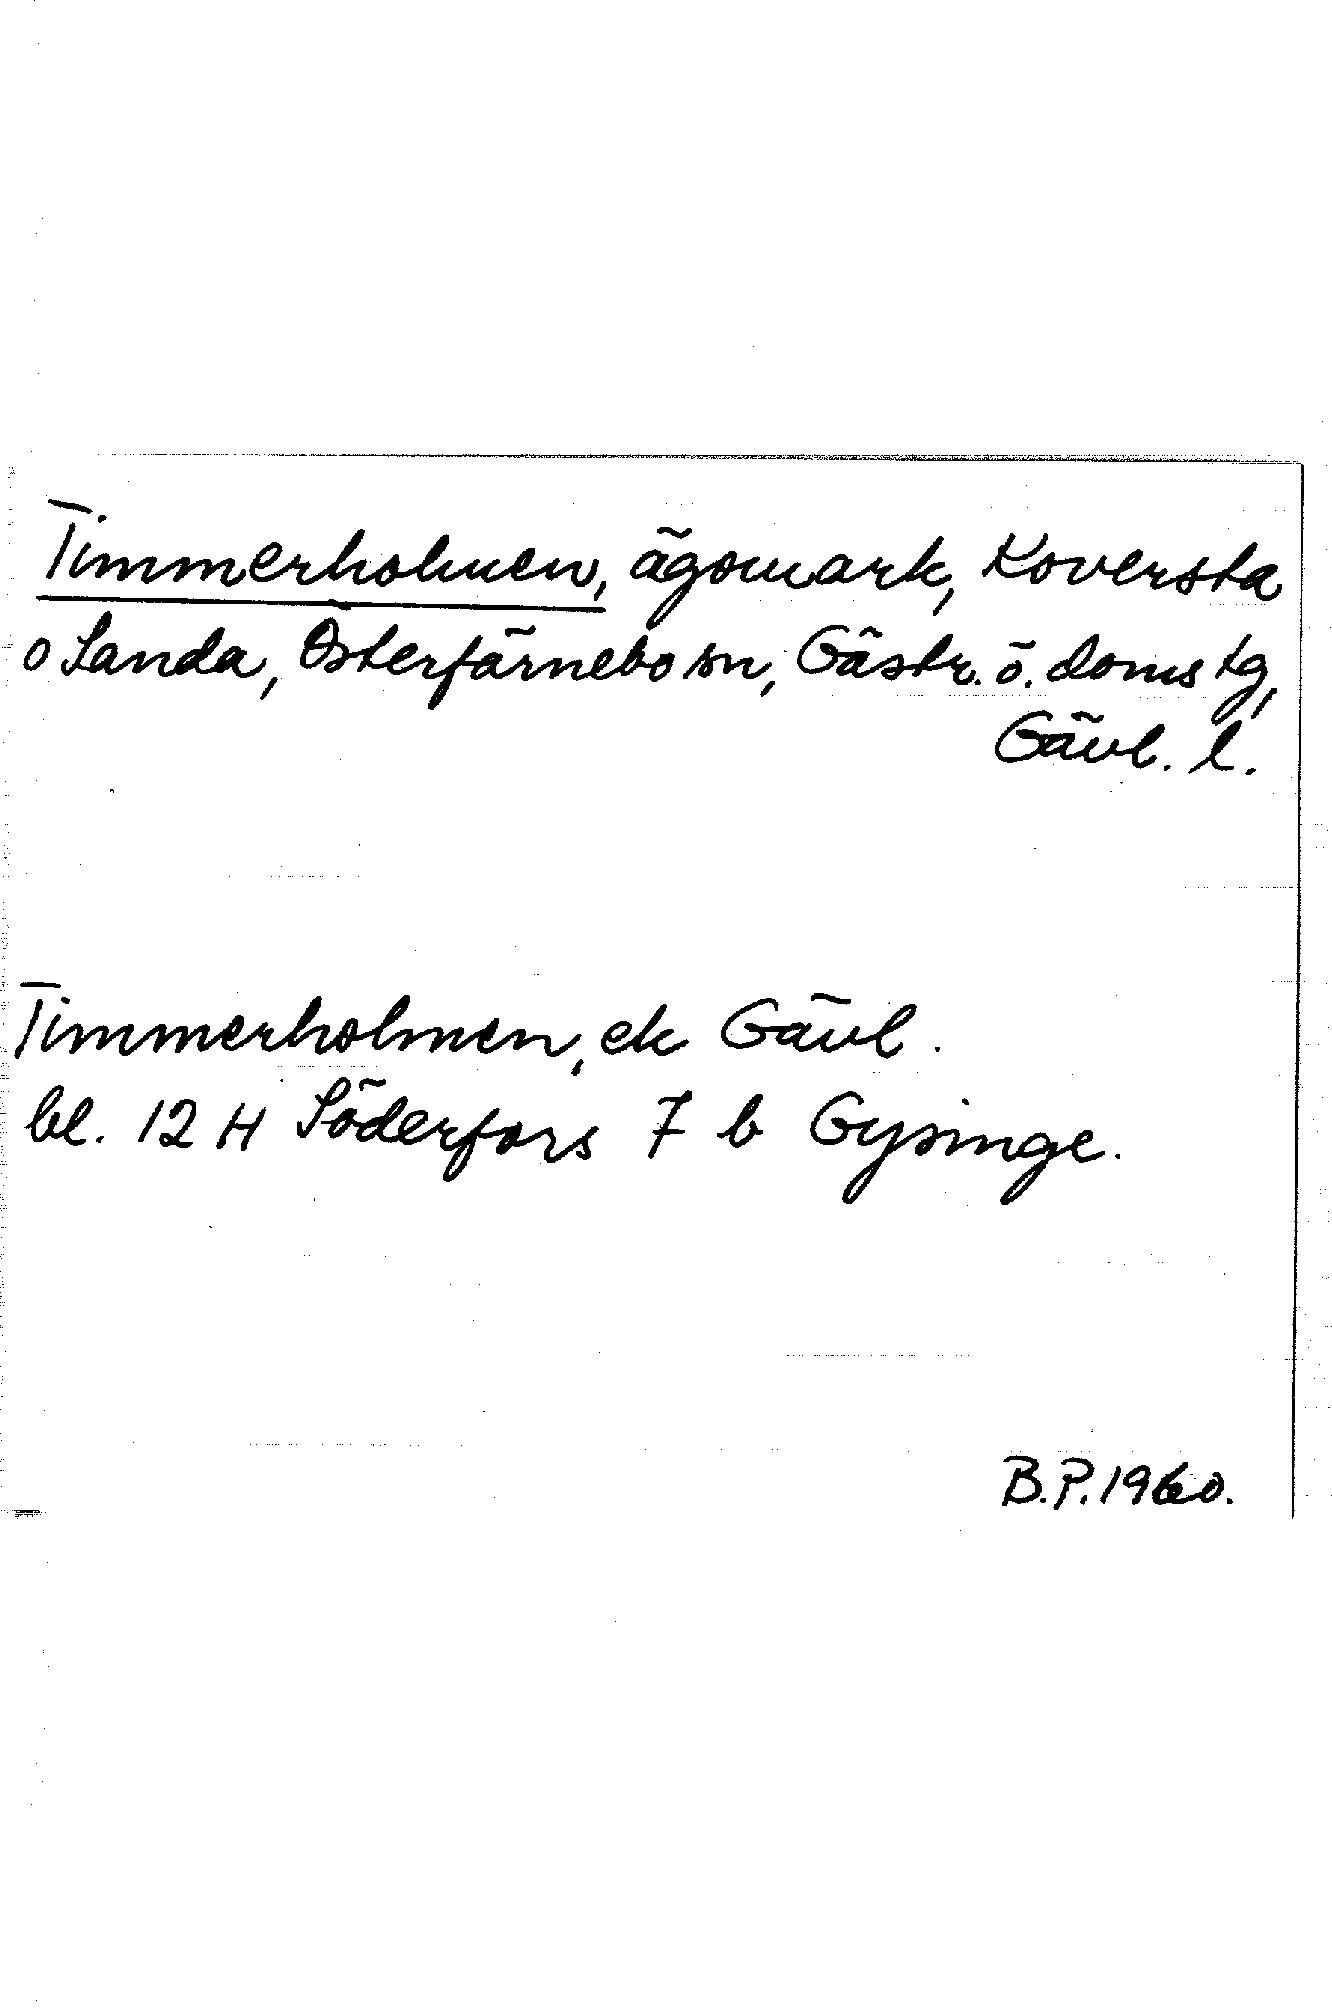 Timmerholmen, ägomark, Koversta
o Sanda, Österfärnebo sn, Gästr. ö. doms tg,
Gävl. l.
Timmerholmen, ek Gävl.
bl. 12 H Söderfors 7 b Gysinge.
B.P. 1960.